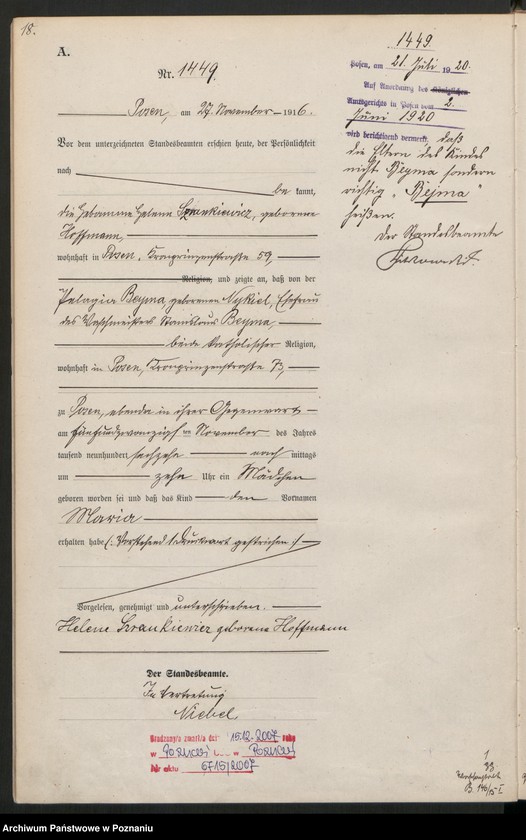 18.
A.
Nr. 1449
Posen, am 27. November 1916.
Vor dem unterzeichneten Standesbeamten erschien heute, der Persönlichkeit
nach
be kannt,
die Hebamme Helene Szrankiewicz, geborene
Hoffmann,
wohnhaft in Posen, Kronprinzenstraße 59,
Religion, und zeigte an, daß von der
Pelagia Beyma, geborenen Nykiel, Ehefrau
des Stanislaus Beyma,
beide katholischer Religion,
wohnhaft in Posen, Kronprinzenstraße 73,
zu Posen, ebenda in ihrer Gegenwart
am fünfundzwanzigsten November des Jahres
tausend neunhundert sechzehn nach mittags
um zehn Uhr ein Mädchen
geboren worden sei und daß das Kind den Vornamen
Maria
erhalten habe. (: Vorstehend 1 Druckwort gestrichen :)
Vorgelesen, genehmigt und unterschrieben.
Helene Szrankiewicz geborene Hoffmann
Der Standesbeamte.
In Vertretung
Niebel
1449.
Posen, am 21. Juli 1920.
Auf Anordnung des Königlichen
Amtsgerichts in Posen vom 2.
Juni 1920
wird berichtigend vermerkt, daß
die Eltern des Kindes
nicht Beyma sondern
richtig „Bejma"
heißen.
Der Standesbeamte
Urodzony/a zmarł/a dn. 15.12.2007 roku
w Poznaniu w Poznaniu
Nr aktu 6715/2007
1
33
B. 146/15 I
Archiwum Państwowe w Poznaniu